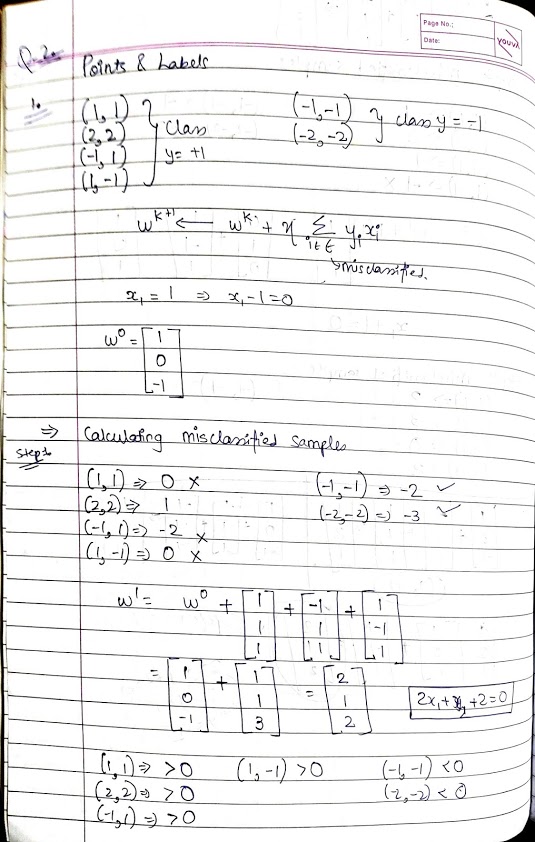 Page No.:
Date:
YOUVA
Q-2.
Points & Labels
1.
(1, 1)
(2, 2)
(-1, 1)
(1, -1)
} class y = +1
(-1, -1)
(-2, -2)
} class y = -1
w^{k+1} ← w^k + η Σ_{i∈E} y_i x_i
↳ misclassified.
x₁ = 1 ⇒ x₁ - 1 = 0
w⁰ = [1 0 -1]
⇒ Calculating misclassified samples
Step 1
(1, 1) ⇒ 0 × (-1, -1) ⇒ -2 ✓
(2, 2) ⇒ 1 (-2, -2) ⇒ -3 ✓
(-1, 1) ⇒ -2 ×
(1, -1) ⇒ 0 ×
w¹ = w⁰ + [1 1 1] + [-1 1 1] + [1 -1 1]
= [1 0 -1] + [1 1 3] = [2 1 2] 2x₁ + x₂ + 2 = 0
(1, 1) ⇒ > 0 (1, -1) > 0 (-1, -1) < 0
(2, 2) ⇒ > 0 (-2, -2) < 0
(-1, 1) ⇒ > 0